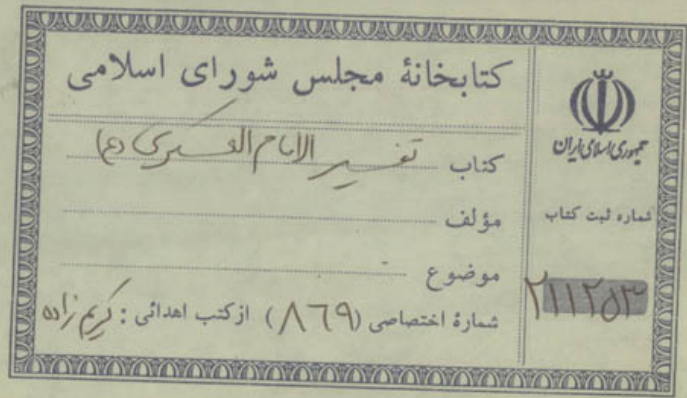 کتابخانهٔ مجلس شورای اسلامی
کتاب تفسیر الامام العسکری (ع)
مؤلف
موضوع
شمارهٔ اختصاصی (٨٦٩) از کتب اهدائی : کریم زاده
جمهوری اسلامی ایران
شماره ثبت کتاب
٢١١٢٥٣